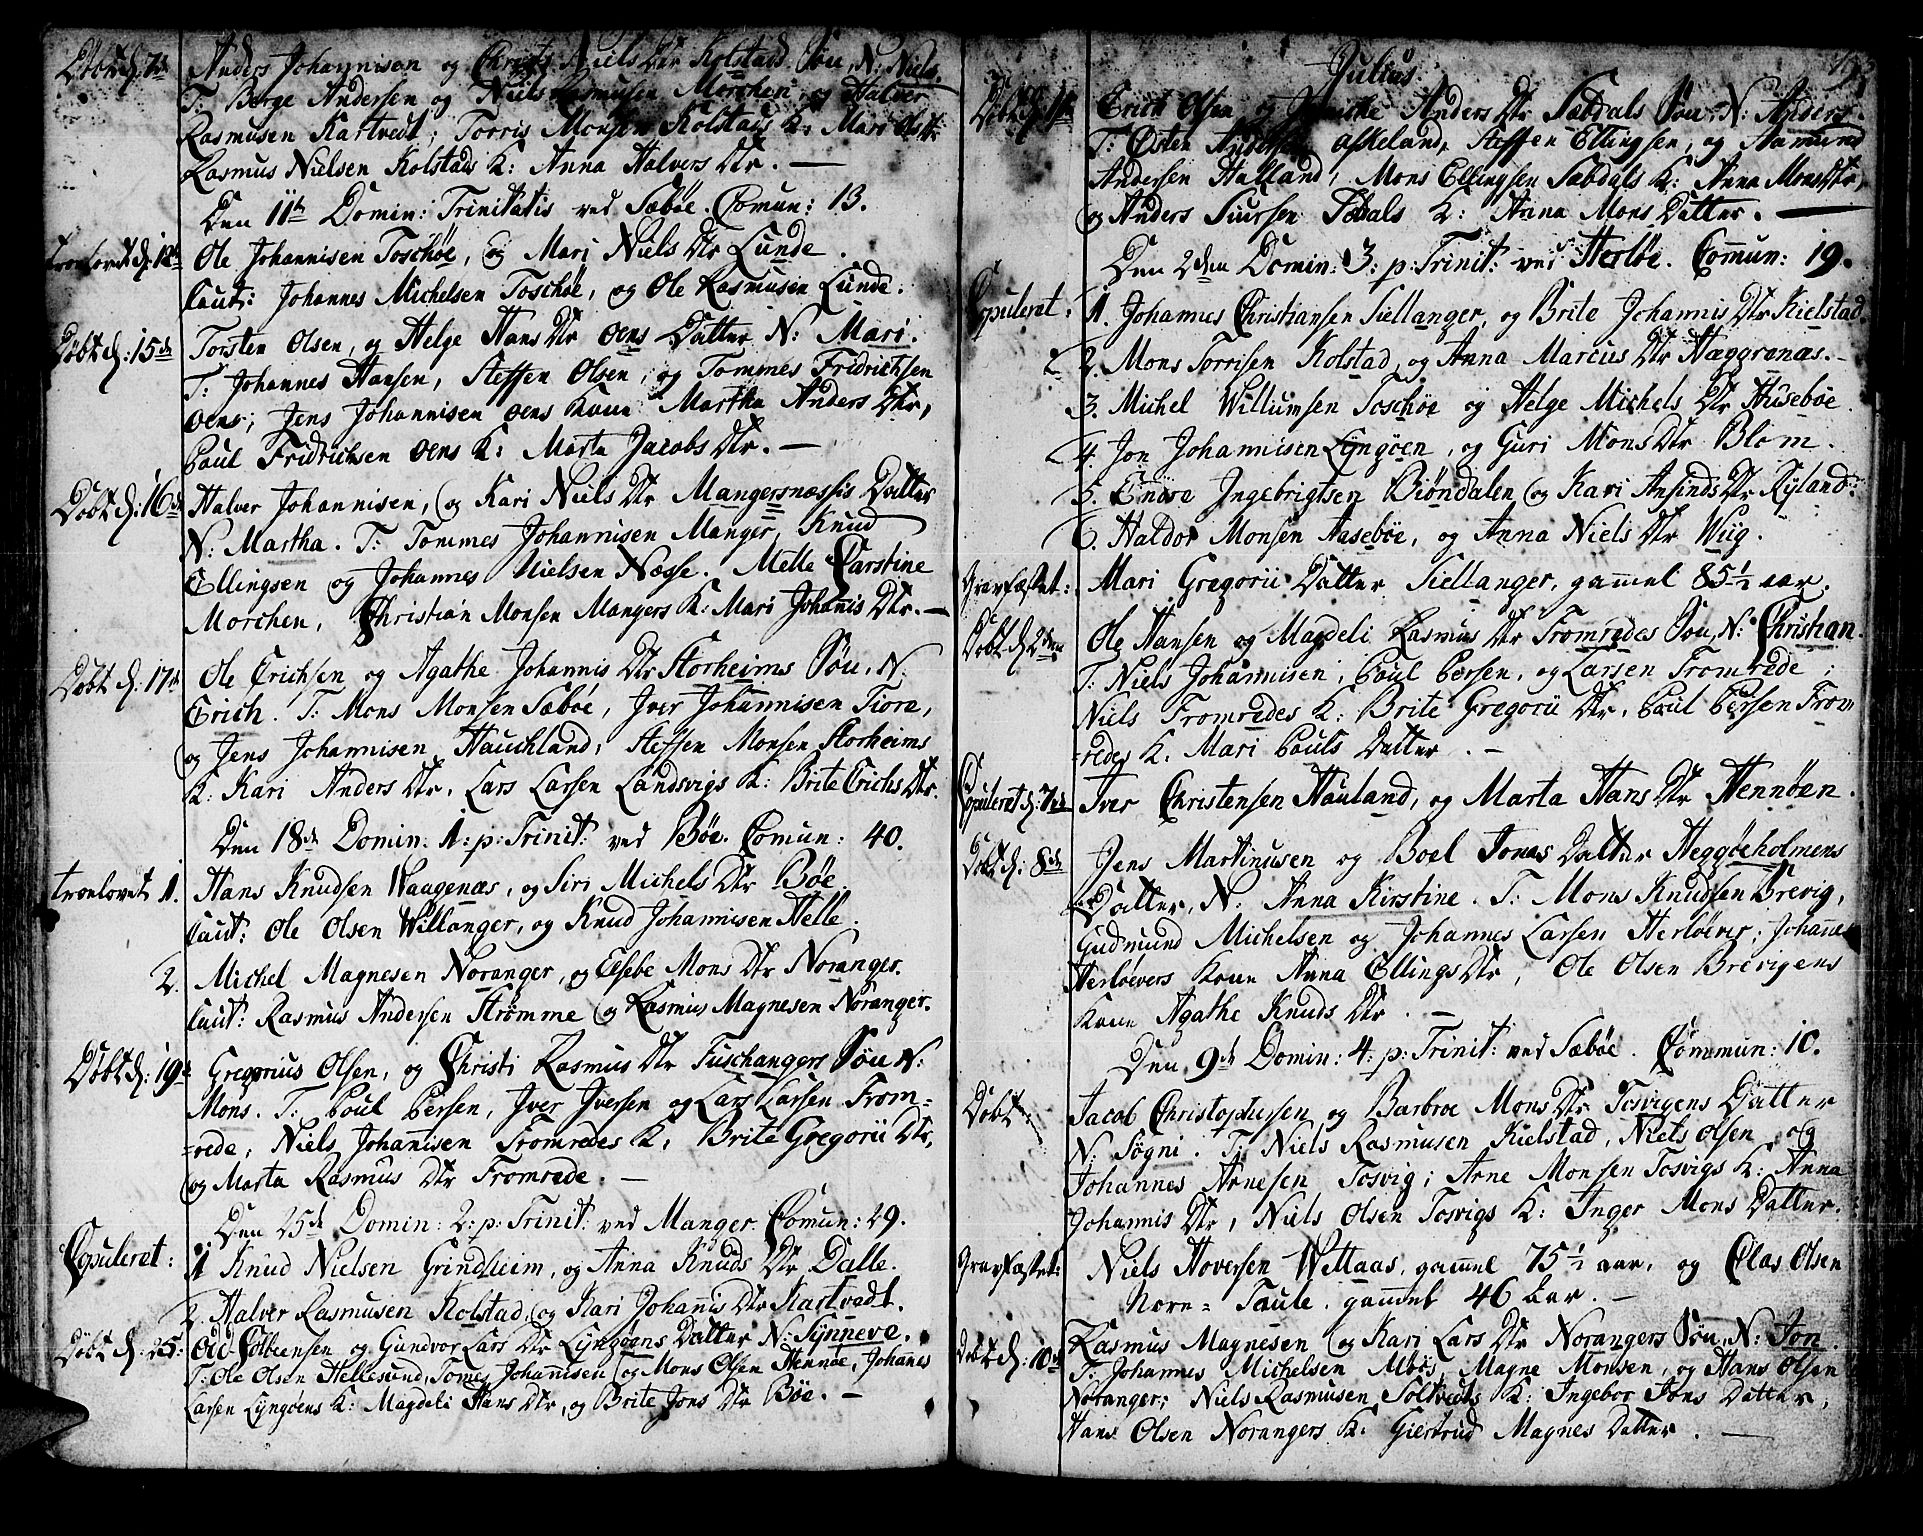 Döbt d: 7de Anders Johannison og Christi Niels Dtr Kolstads Søn, N: Niels.
T: Berge Andersen og Niels Rasmusen Morchen, og Halver
Rasmusen Kartvedt; Torris Monsen Kolstads K: Mari Ols Dtr
Rasmus Nielsen Kolstads K: Anna Halvers Dtr. —
Den 11te Domin: Trinitatis ved Sæbøe. Comun: 13.
troelovet d: 12te Ole Johannisen Toschøe, og Mari Niels Dtr Lunde.
Caut: Johannes Michelsen Toschøe, og Ole Rasmusen Lunde.
Döbt d: 15de Torsten Olsen, og Helge Hans Dtr Oens Datter N: Mari.
T: Johannes Hansen, Steffen Olsen, og Tommes Fridrichsen
Oens; Jens Johannisen Oens Kone Martha Anders Dtr,
Poul Fridrichsen Oens K: Marta Jacobs Dtr. —
Döbt d: 16de Halver Johannisen, og Kari Niels Dtr Mangersnæssis Datter
N: Martha. T: Tommes Johannisen Manger, Knud
Ellingsen og Johannes Nielsen Næsse. Melle Carstine
Morchen, Christian Monsen Mangers K: Mari Johannis Dtr. —
Döbt d: 17de Ole Erichsen og Agathe Johannis Dtr Storheims Søn, N:
Erich. T: Mons Monsen Sæbøe, Jver Johannisen Fiore,
og Jens Johannisen Hauchland; Steffen Monsen Storheims
K: Kari Anders Dtr, Lars Larsen Landsvigs K: Brite Erichs Dtr.
Den 18de Domin: 1: p: Trinit: ved Bøe. Comun: 40.
troelovet 1. Hans Knudsen Waagenæs, og Siri Michels Dtr Bøe.
Caut: Ole Olsen Willanger, og Knud Johannisen Helle.
2. Michel Magnesen Noranger, og Elsebe Mons Dtr Noranger.
Caut: Rasmus Andersen Strømme og Rasmus Magnesen Noranger.
Döbt d: 19de Gregorius Olsen, og Christi Rasmus Dtr Fuschangers Søn N:
Mons. T: Poul Persen, Jver Jversen og Lars Larsen From=
=rede; Niels Johannisen Fromredes K: Brite Gregorii Dtr,
og Marta Rasmus Dtr Fromrede. —
Den 25de Domin: 2: p: Trinit: ved Manger. Comun: 29.
Copuleret: 1 Knud Nielsen Grindheim, og Anna Knuds Dtr Dalle.
2. Halver Rasmusen Kolstad, og Kari Johanis Dtr Kartvedt.
Döbt d: 25: Ole Colbeensen og Gundvor Lars Dtr Lyngøens Datter N: Synneve.
T: Ole Olsen Hellesund, Tomes Johannisen og Mons Olsen Hennøe, Johanes
Larsen Lyngøens K: Magdeli Hans Dtr, og Brite Jons Dtr Bøe. —
Julius
Döbt d: 1te Erich Olsen og Anders Dtr Sæbdals Søn, N: Anders.
T: Østen Askeland, Steffen Ellingsen, og Aamund
Andersen Halland; Mons Ellingsen Sæbdals K: Anna Mons Dtr,
og Anders Siursen Sebdals K: Anna Mons Datter. —
Den 2den Domin: 3: p: Trinit: ved Herløe. Comun: 19.
Copuleret: 1. Johannes Christiansen Siellanger, og Brite Johannis Dtr Kielstad.
2. Mons Torrisen Kolstad, og Anna Marcus Dtr Hæggrenæs. —
3. Michel Willumsen Toschøe og Helge Michels Dtr Husebøe.
4. Jon Johannisen Lyngøen, og Guri Mons Dtr Blom.
5. Endre Ingebrigtsen Biøndalen og Kari Ansinds Dtr Ryland.
6. Haldor Monsen Aasebøe, og Anna Niels Dtr Wiig.
Gravfæstet: Mari Gregorii Datter Siellanger, gammel 85 1/2 aar.
Döbt d: 2den Ole Hansen og Magdeli Rasmus Dtr Fromredes Søn, N: Christian.
T: Niels Johannisen, Poul Persen, og Larsen Fromrede;
Niels Fromredes K: Brite Gregorii Dtr, Poul Persen From
=redes K: Mari Pouls Datter. —
Copuleret d: 7de Iver Christensen Hauland, og Marta Hans Dtr Hennøen.
Döbt d: 8de Jens Martinusen og Boel Jonas Datter Heggøeholmens
Datter, N: Anna Kirstine. T: Mons Knudsen Brevig,
Gudmund Michelsen og Johannes Larsen Herløever; Johannes
Herløevers Kone Anna Ellings Dtr, Ole Olsen Brevigens
Kone Agathe Knuds Dtr. —
Den 9de Domin: 4: p: Trinit: ved Sæbøe. Commun: 10.
Döbt: Jacob Christophersen, og Barbroe Mons Dtr Tosvigens Datter
N: Søgni. T: Niels Rasmusen Kielstad, Niels Olsen, og
Johannes Arnesen Tosvig; Arne Monsen Tosvigs K: Anna
Johannis Dtr, Niels Olsen Tosvigs K: Inger Mons Datter.
Gravfæstet: Niels Hoversen Wettaas, gammel 75 1/2 aar, og Claas Olsen
Norn= Taule, gammel 46 aar. —
Döbt d: 10de Rasmus Magnesen og Kari Lars Dtr Norangers Søn, N: Jon.
T: Johannes Michelsen Mbøe, Magne Monsen, og Hans Olsen
Noranger; Niels Rasmusen Soltveds K: Ingebor Jons Datter,
Hans Olsen Norangers K: Giertrud Magnes Datter. —